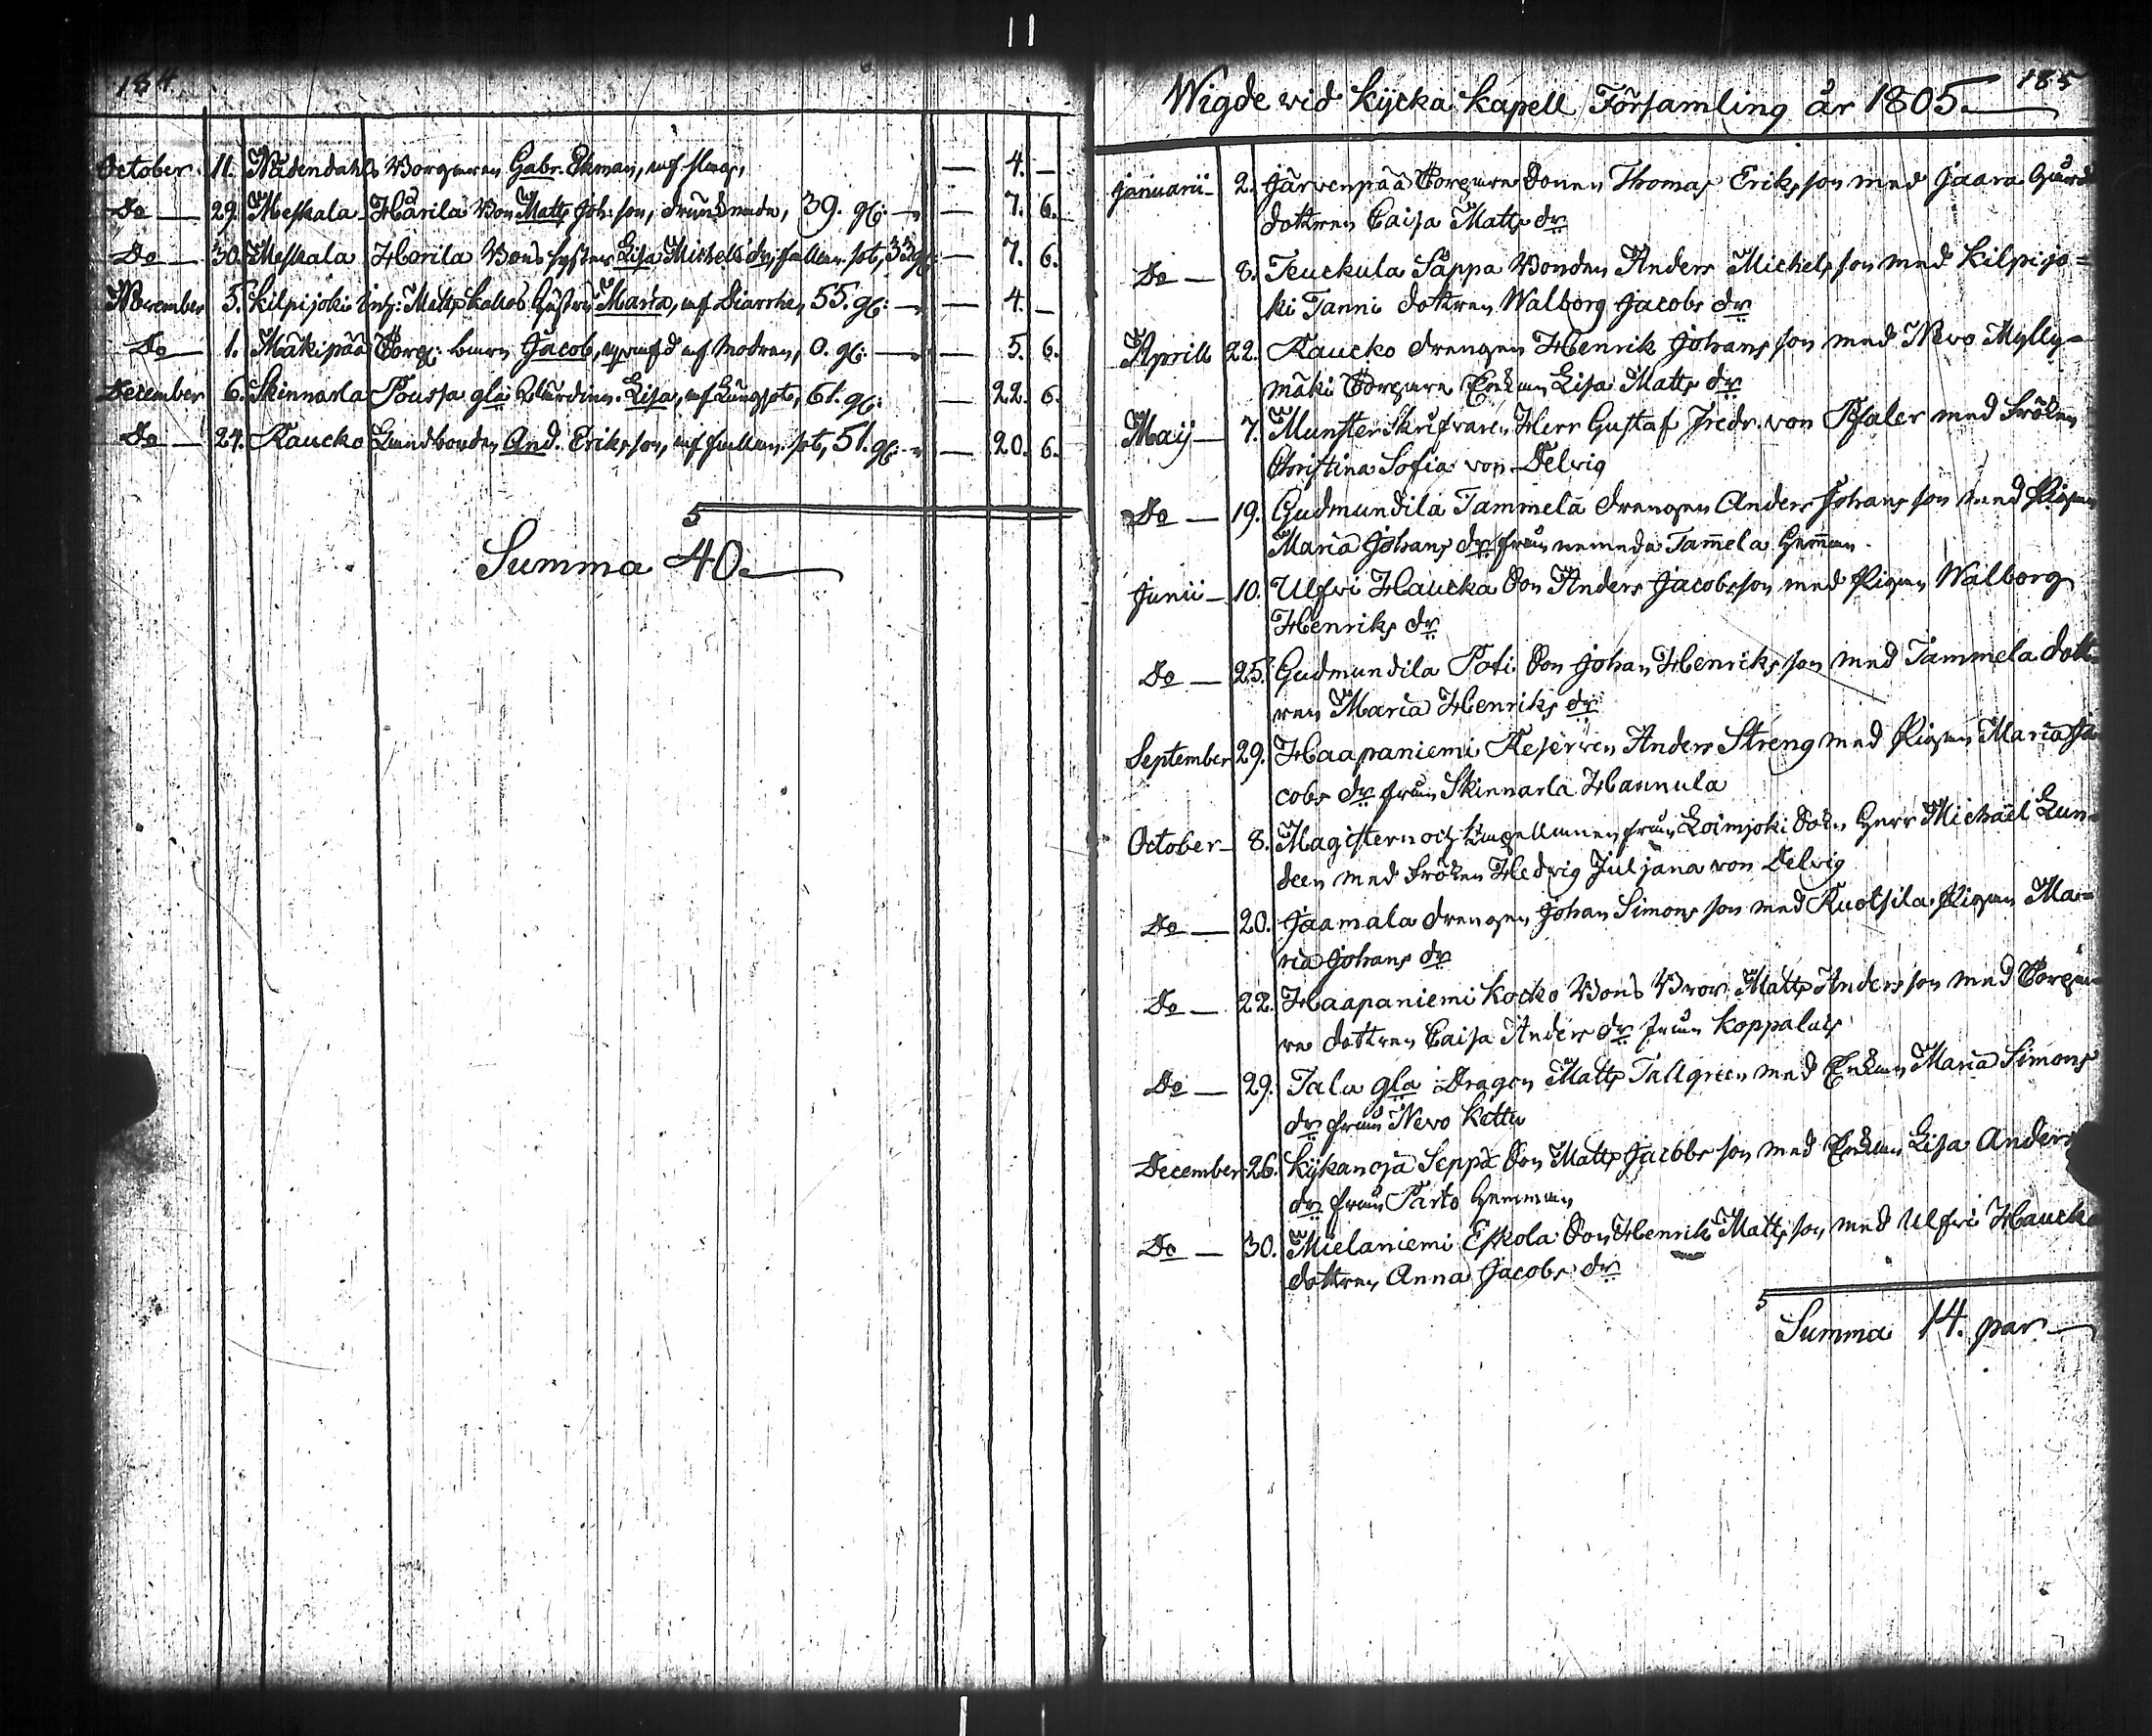 184.
October. 11. Nådendahls Borgaren Gabr. Ekman, af slag, — 4. —
Do — 29. Meskala Härilä Bon Matts Joh: son, drunknade, 39. gl: — 7. 6.
Do — 30. Meskala Horila Bons syster Lisa Michels dr, fallan. sot, 33 gl: — 7. 6.
November 5. Kilpijoki inh: Matts hustru Maria, af Diarrhe, 55. gl: — 4. —
Do — 1. Mäkipää Torp: barn Jacob, af modren, 0. gl: — 5. 6.
December 6. Skinnarla Poussa gla Värdinn. Lisa, af Lungsot, 61. gl: — 22. 6.
Do — 24. Raucko Landbonden And. Eriks son, af fallan. sot, 51. gl: — 20. 6.
Summa 40.
Wigde vid Kycka Kapell Församling år 1805. 185
Januarii — 2. Järvenpää Torpare Sonen Thomas Eriks son med Jaara Gårds
dottren Caisa Matts dr
Do — 8. Teuckula Säppa Bonden Anders Michels son med Kilpijo=
ki Tanni dottren Walborg Jacobs dr
Aprill 22. Raucko drengen Henrik Johans son med Nevo Mylly=
mäki Torpare Enkan Lisa Matts dr
Maij — 7. Munsterskrifvaren Herr Gustaf Fredr. von Pfaler med Fröken
Christina Sofia von Delvig
Do — 19. Gudmundila Tammela drengen Anders Johans son med Pigan
Maria Johans dr från nemnda Tam̄ela Hem̄an.
Junii — 10. Ulfvi Haucka Son Anders Jacobsson med Pigan Walborg
Henriks dr
Do — 25. Gudmundila Poti Son Johan Henriks son med Tammela dott=
ren Maria Henriks dr
September 29. Haapaniemi Reserven Anders Streng med Pigan Maria Ja
cobs dr från Skinnarla Hannula
October — 8. Magistern och Kapellanen från Loimjoki Sokn Herr Michaël Lun=
deen med Fröken Hedvig Juljana von Delvig
Do — 20. Jaamala drengen Johan Simons son med Ruotsila Pigan Ma=
ria Johans dr
Do — 22. Haapaniemi Kocko Bons Bror Matts Anders son med Torpa=
re dottren Caisa Anders dr från Koppalais
Do — 29. Talu gla Dragon Matts Tallgreen med Enkan Maria Simons
dr från Nevo Kettu
December 26. Kykanoja Seppä Son Matts Jacobs son med Enkan Lisa Anders
dr från Parto Hemman
Do — 30. Mielaniemi Eskola Son Henrik Matts son med Ulfvi Haucka
dottren Anna Jacobs dr
Summa 14. par